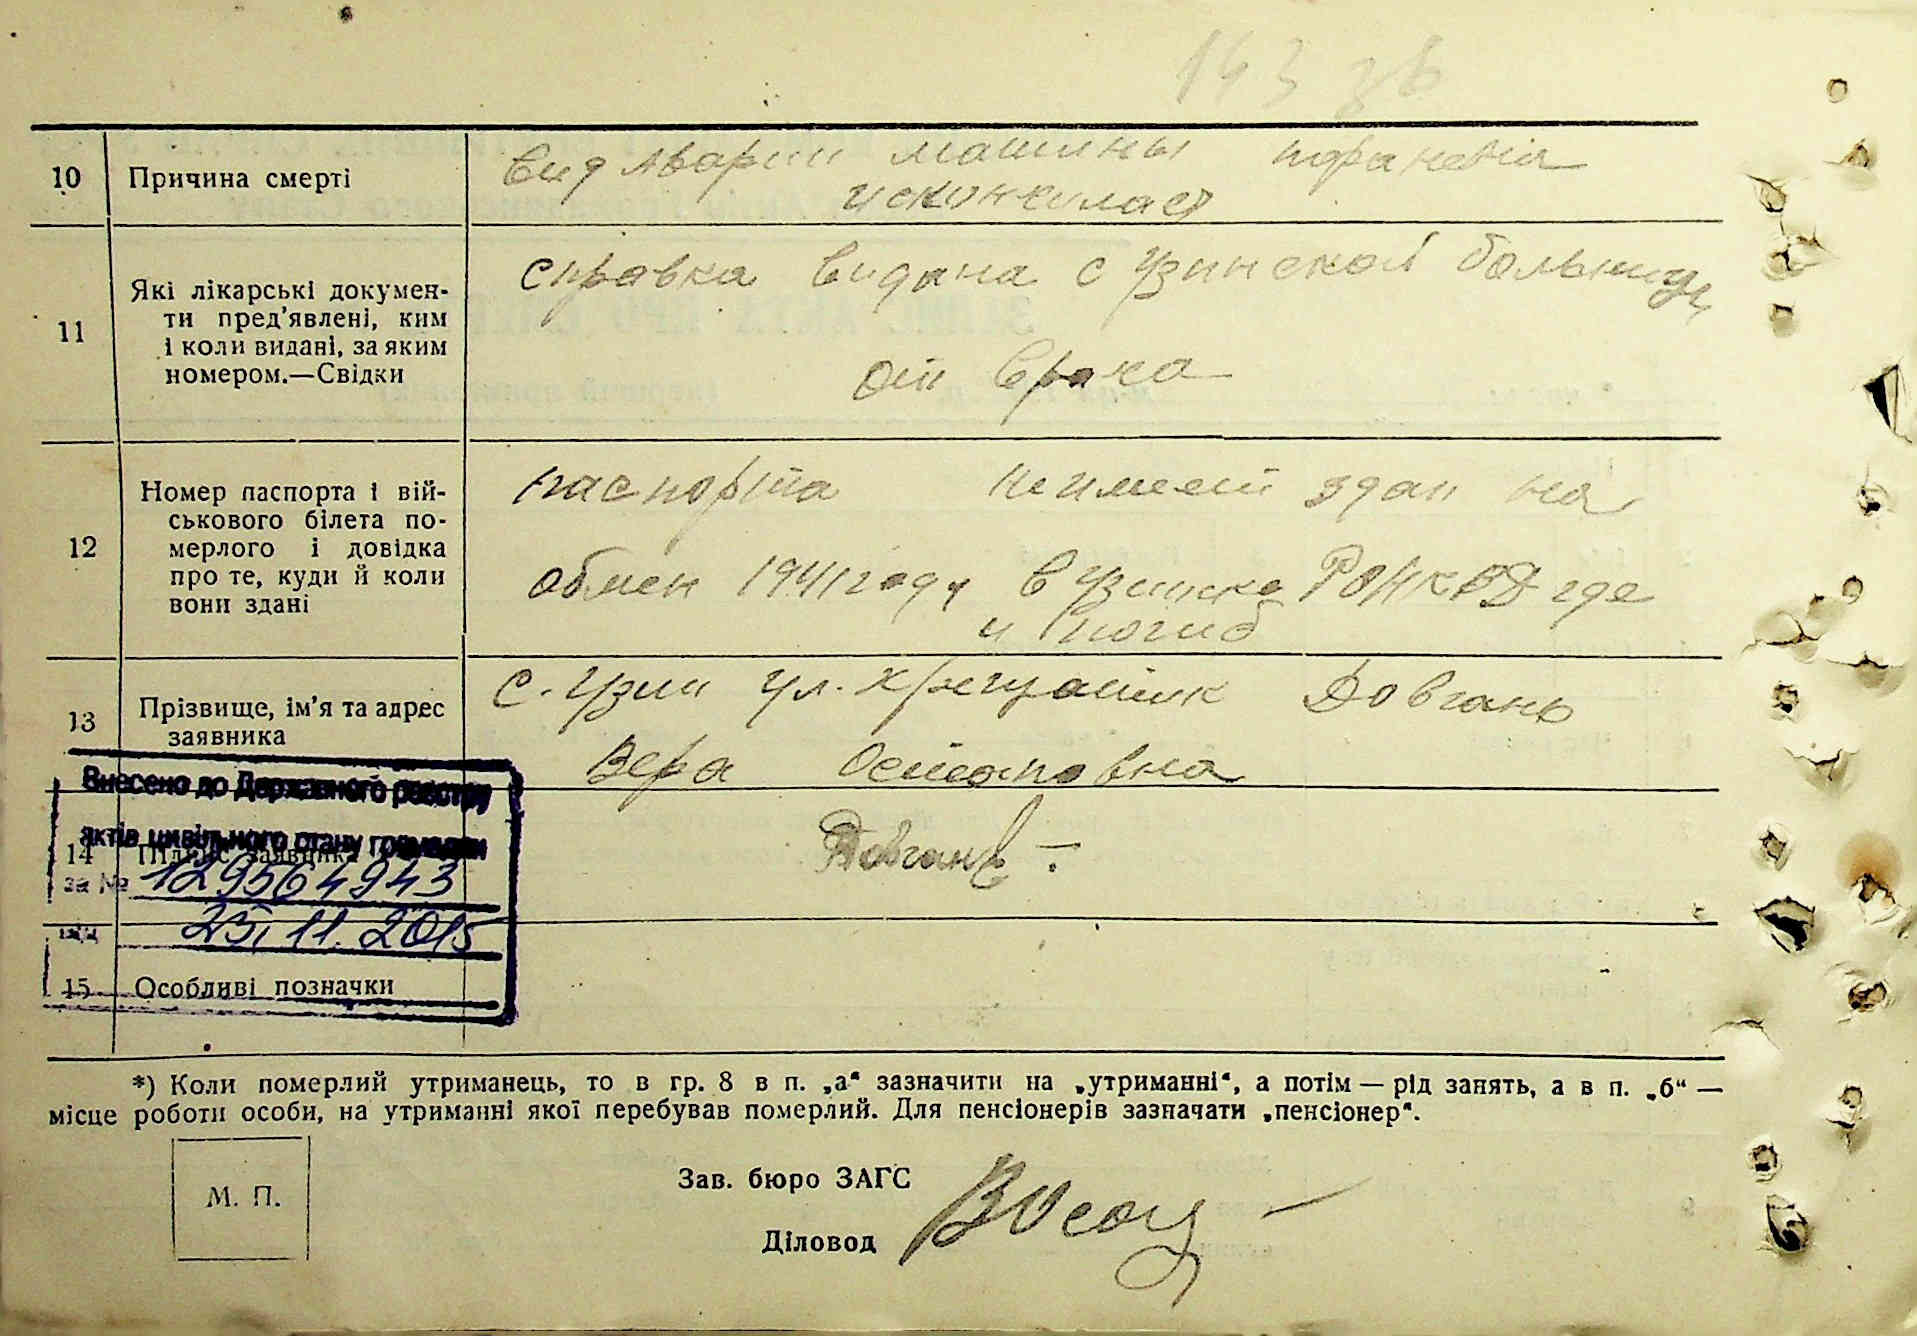 143 зв
10 Причина смерті
вид Аварии машины
11 Які лікарські докумен-
ти пред'явлені, ким
і коли видані, за яким
номером.—Свідки
справка видана с Узинской больници
от врача
12 Номер паспорта і вій-
ськового білета по-
мерлого і довідка
про те, куди й коли
вони здані
паспорта неимеет здан на
обмен 1941 году в Узинско РОНКВД где
и погиб
13 Прізвище, ім'я та адрес
заявника
с. Узин ул. Хрещатик Довгань
Вера Остаповна
Внесено до Державного реєстру
актів цивільного стану громадян
14 Підпис заявника
Довгань
за № 129564943
від 25.11.2015
15 Особливі позначки
*) Коли померлий утриманець, то в гр. 8 в п. „а“ зазначити на „утриманні“, а потім — рід занять, а в п. „б“ —
місце роботи особи, на утриманні якої перебував померлий. Для пенсіонерів зазначати „пенсіонер“.
М. П.
Зав. бюро ЗАГС
Діловод